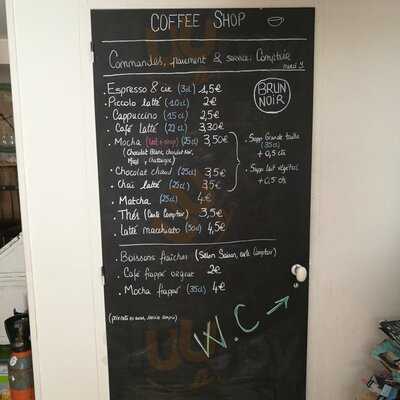 COFFEE SHOP
Commandes, paiement & service: Comptoir
merci !
BRUN
NOIR
. Espresso 8 cie (3cl) 1,5€
. Piccolo latté (10cl) 2€
. Cappuccino (15cl) 2,5€
. Café latté (22cl) 3,30€
. Mocha (25cl) 3,50€
(Chocolat Blanc, chocolat noir,
Miel, chataigne)
. Supp Grande taille
(35cl)
+ 0,5 cts
. Supp lait végétal
+ 0,5 cts
. Chocolat chaud (25cl) 3,5€
. Chaï latté (25cl) 3,5€
. Matcha (25cl) 4€
. Thés (Carte Comptoir) 3,5€
. latté macchiato (50cl) 4,5€
. Boissons fraîches (Selon Saison, carte Comptoir)
. Café frappé orgeat 2€
. Mocha frappé (35cl) 4€
(prix nets en euros, service compris)
W.C →